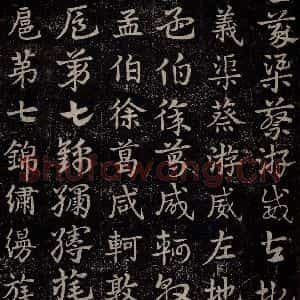 義渠蔡游威左地
義渠蔡游威左地
孟伯徐葛咸軻敦
孟伯徐葛咸軻敦
扈第七錦繡縵旄
扈第七錦繡縵旄
Shufawang.Cn